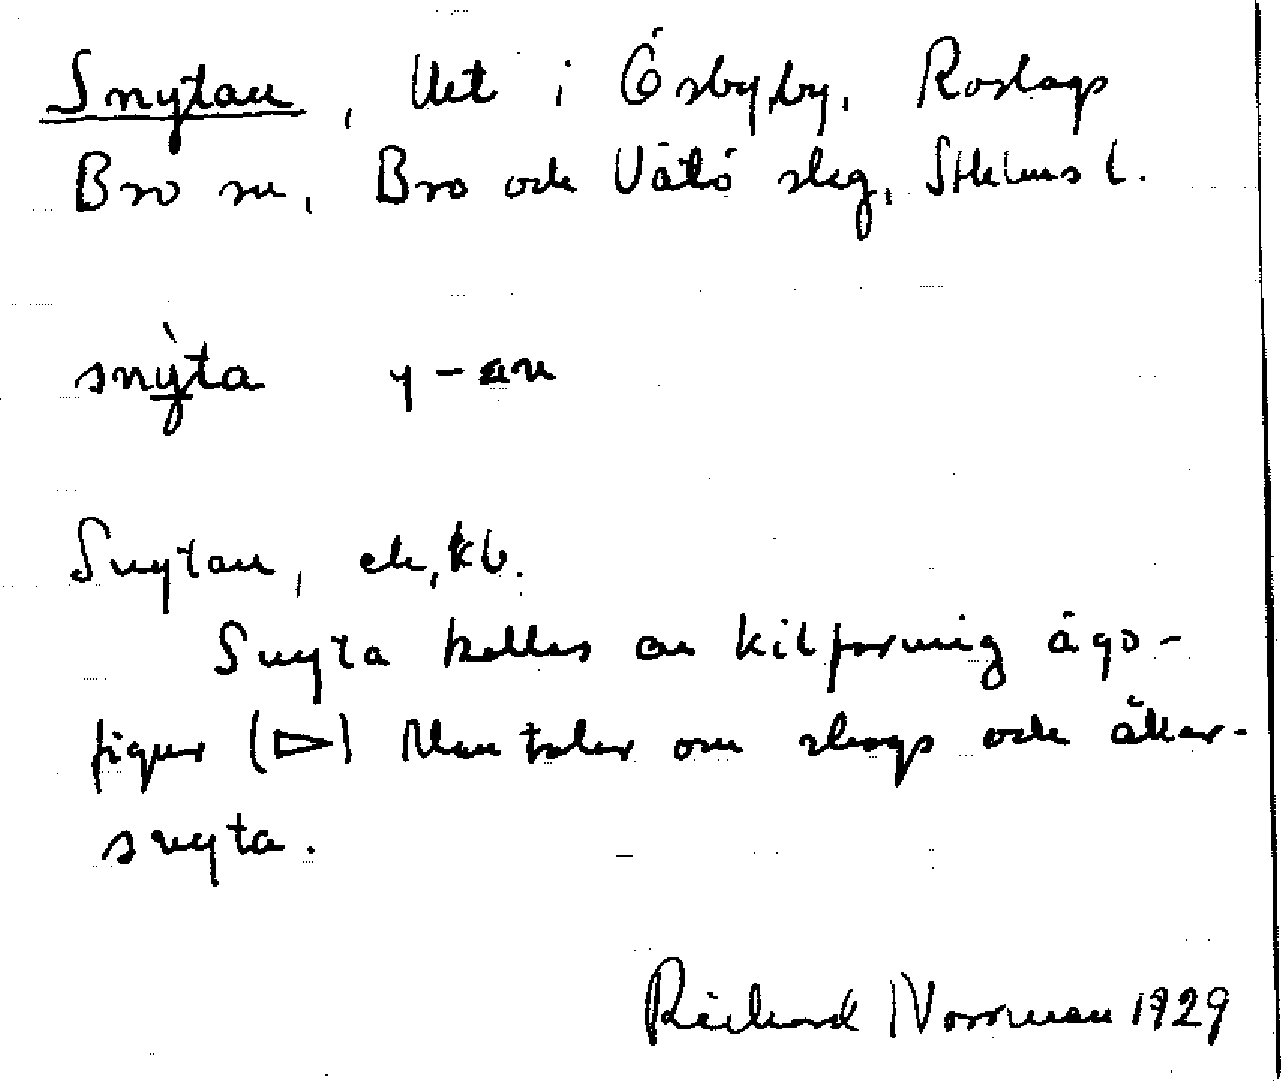 Snytan, Uet i Ösbyby, Roslags
Bro sn, Bro och Vätö skg, Sthlms l.
snỳta y -an
Snytan, ek, kb.
Snyta kallas en kilformig ägo-
figur (▷) Man talar om skogs och åker-
snyta.
Rickard Norrman 1929